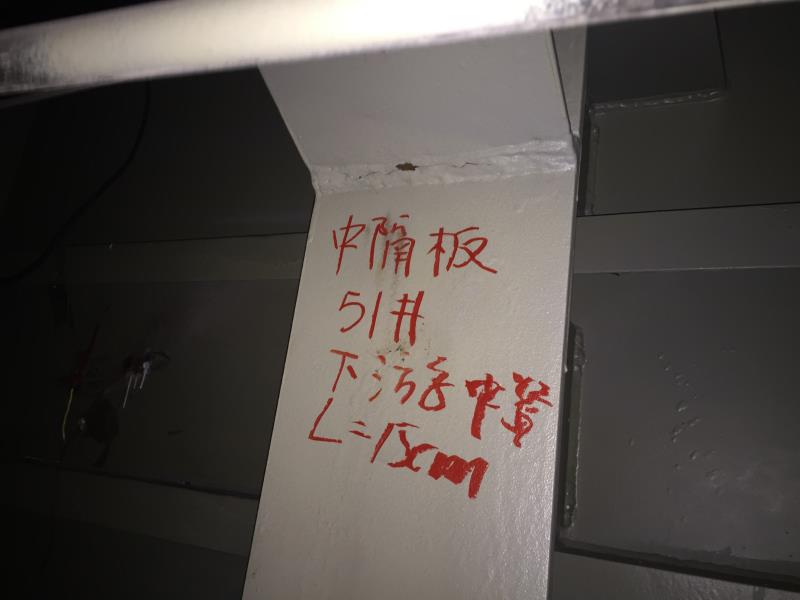 中隔板
51#
下游中
L=15cm